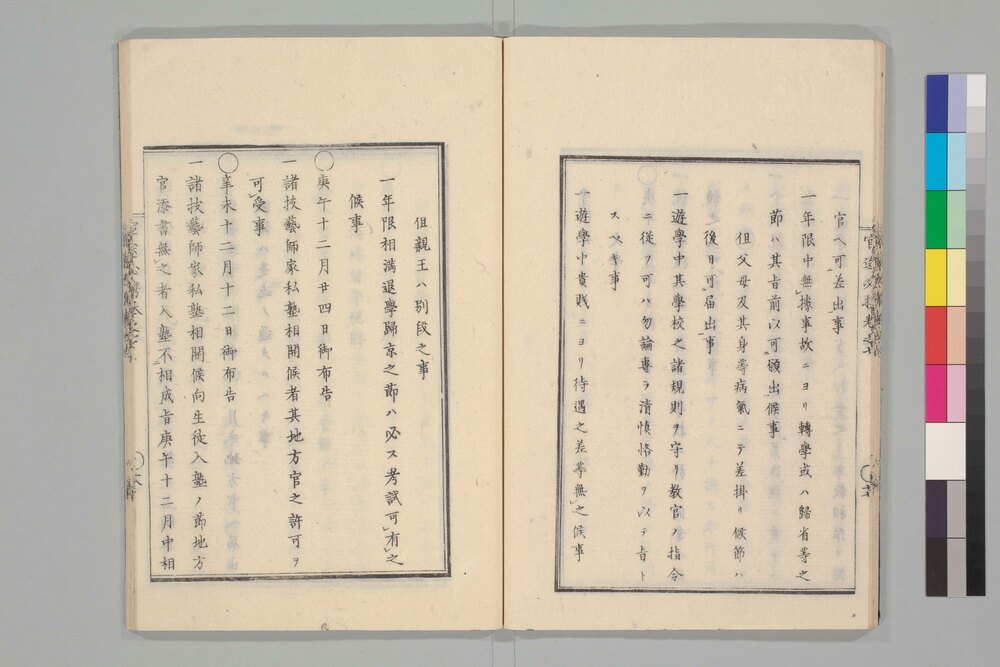 官ヘ可差出事
一年限中無據事故ニヨリ轉學或ハ歸省等之
節ハ其旨前以可願出候事
但父母及其身等病氣ニテ差掛リ候節ハ
後日可届出事
一遊學中其學校之諸規則ヲ守リ教官ノ指令
ニ從フ可ハ勿論專ラ清慎恪勤ヲ以テ旨ト
スヘキ事
一遊學中貴賎ニヨリ待遇之差等無之候事
但親王ハ別段之事
一年限相満退學歸京之節ハ必ス考試可有之
候事
○庚午十二月廿四日御布告
一諸技藝師家私塾相開候者其地方官之許可ヲ
可受事
○辛未十二月十二日御布告
一諸技藝師家私塾相開候向生徒入塾ノ節地方
官添書無之者入塾不相成旨庚午十二月中相